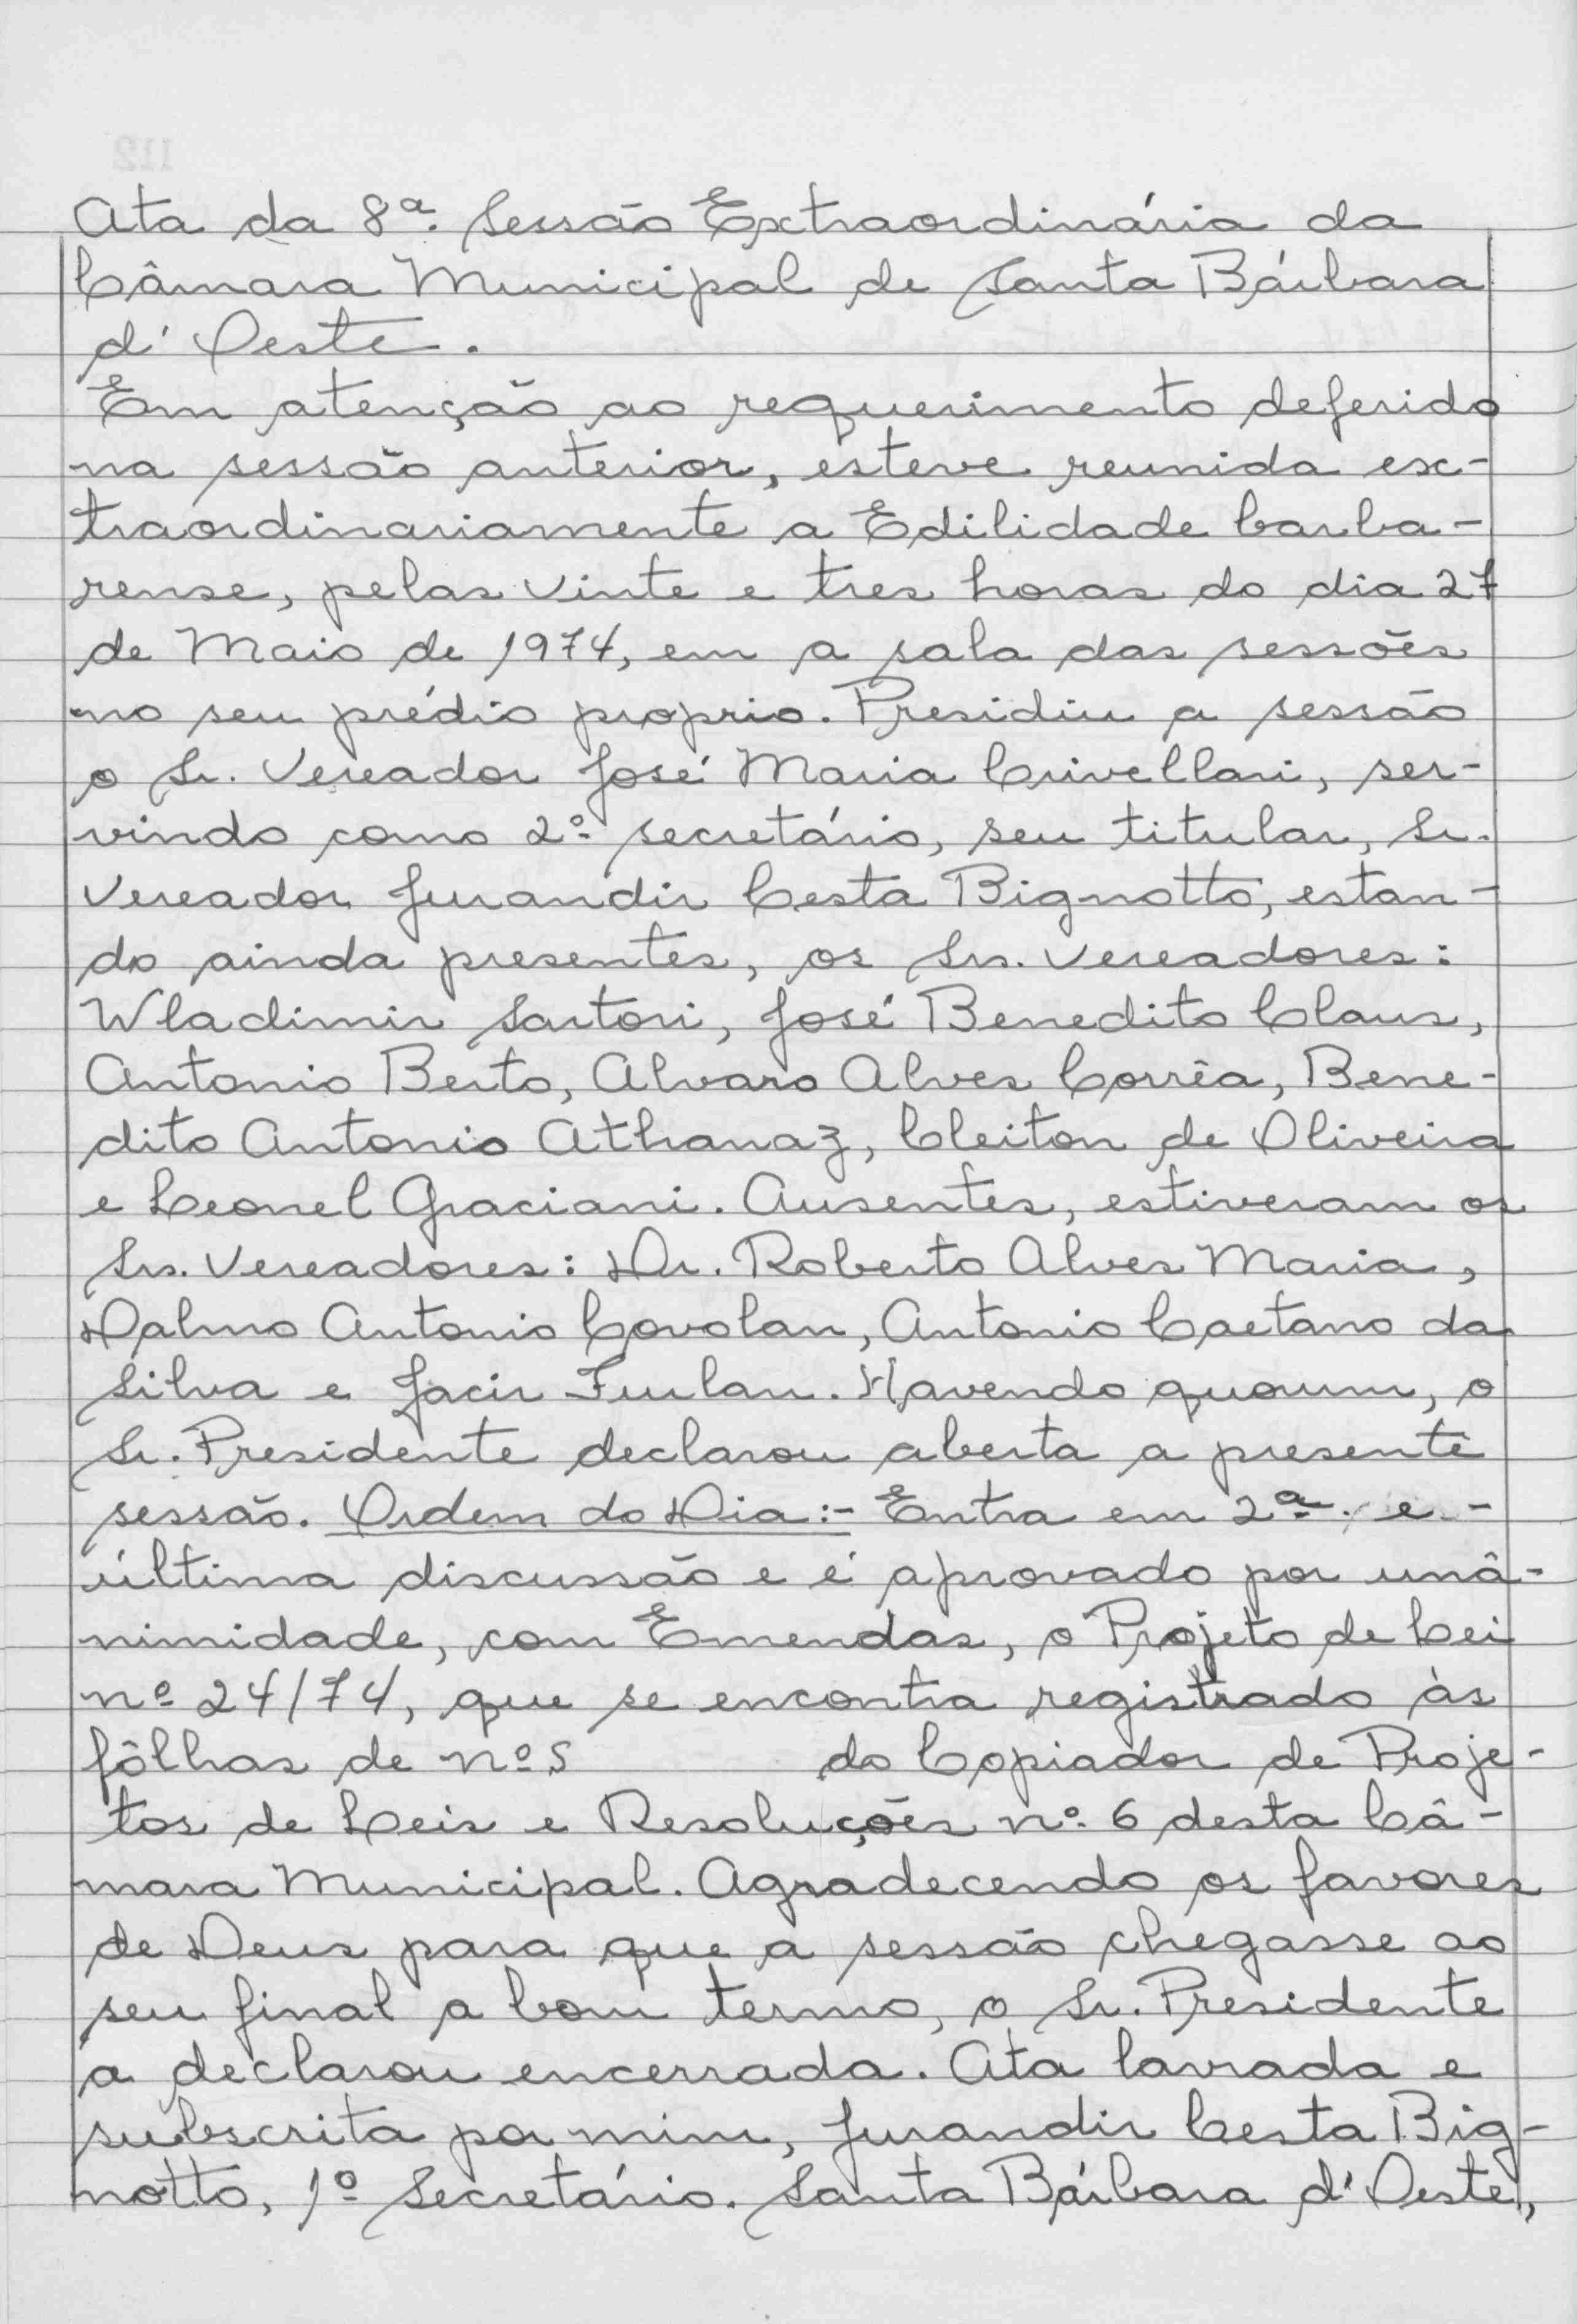 Ata da 8ª. Sessão Extraordinária da
Câmara Municipal de Santa Bárbara
d' Oeste.
Em atenção ao requerimento deferido
na sessão anterior, esteve reunida ex-
traordinariamente a Edilidade barba-
rense, pelas vinte e tres horas do dia 27
de Maio de 1974, em a sala das sessões
no seu prédio proprio. Presidiu a sessão
o Sr. Vereador José Maria Crivellari, ser-
vindo como 2º secretário, seu titular, Sr.
Vereador Jurandir Cesta Bignotto, estan-
do ainda presentes, os Srs. Vereadores:
Wladimir Sartori, José Benedito Claus,
Antonio Berto, Alvaro Alves Corrêa, Bene-
dito Antonio Athanaz, Cleiton de Oliveira
e Leonel Graciani. Ausentes, estiveram os
Srs. Vereadores: Dr. Roberto Alves Maria,
Dalmo Antonio Covolan, Antonio Caetano da
Silva e Jacir Furlan. Havendo quorum, o
Sr. Presidente declarou aberta a presente
sessão. Ordem do Dia:- Entra em 2ª. e -
última discussão e é aprovado por unâ-
nimidade, com Emendas, o Projeto de Lei
nº 24/74, que se encontra registrado às
fôlhas de nºs do Copiador de Proje-
tos de Leis e Resoluções nº 6 desta Câ-
mara Municipal. Agradecendo os favores
de Deus para que a sessão chegasse ao
seu final a bom termo, o Sr. Presidente
a declarou encerrada. Ata lavrada e
subscrita por mim, Jurandir Cesta Big-
notto, 1º Secretário. Santa Bárbara d'Oeste,